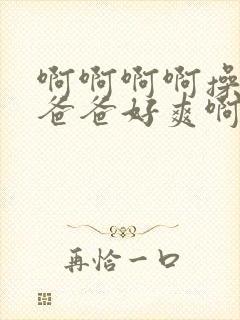 啊啊啊啊操
爸爸好爽啊
再恰一口